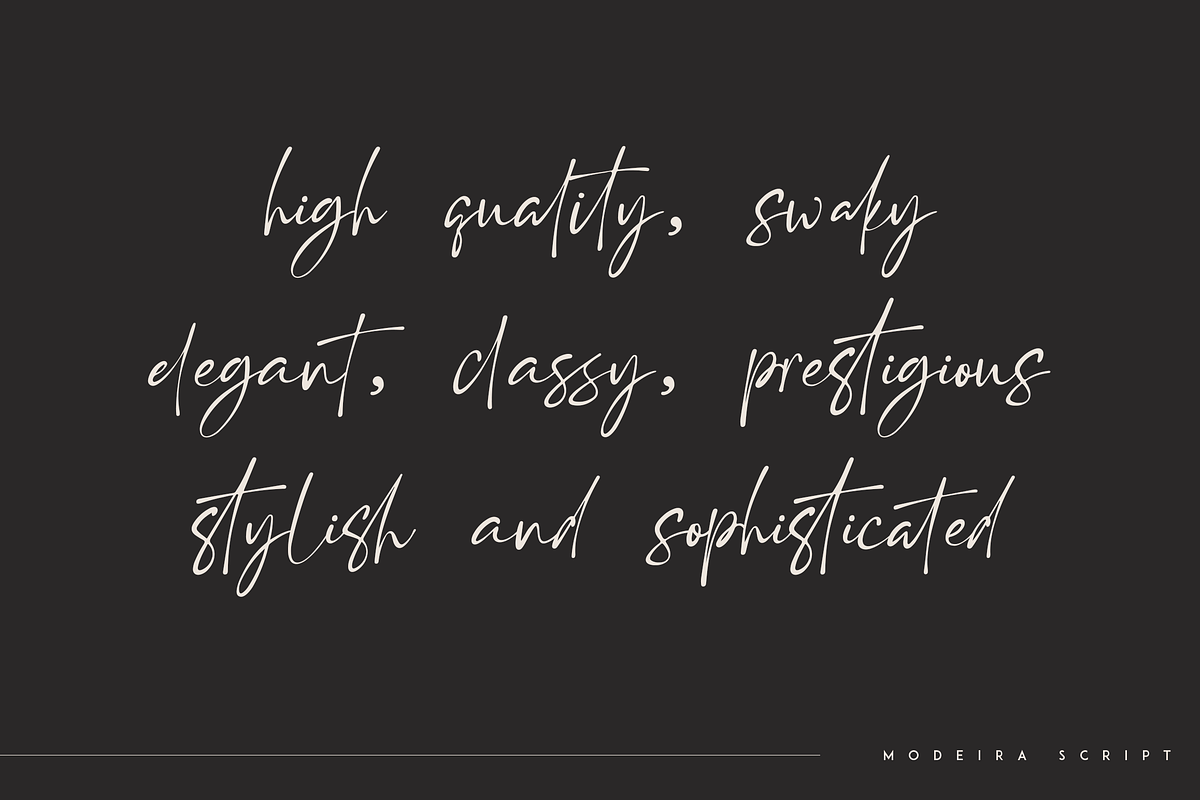 high quality, swaky
elegant, classy, prestigious
stylish and sophisticated
MODEIRA SCRIPT